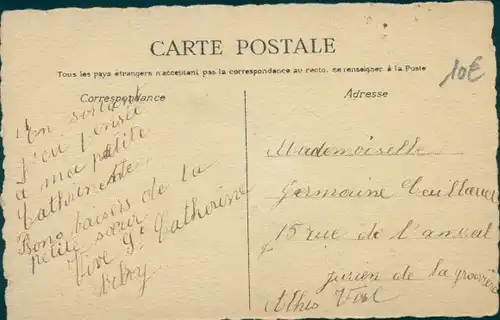 CARTE POSTALE
Tous les pays étrangers n'acceptant pas la correspondance au recto, se renseigner à la Poste
10€
Correspondance
En sortant
j'ai pensé
à ma petite
Catherinette
Bons baisers de la
petite sœur
Vive Ste Catherine
Adresse
Mademoiselle
Germaine
15 rue de l'
de la
Athis Val